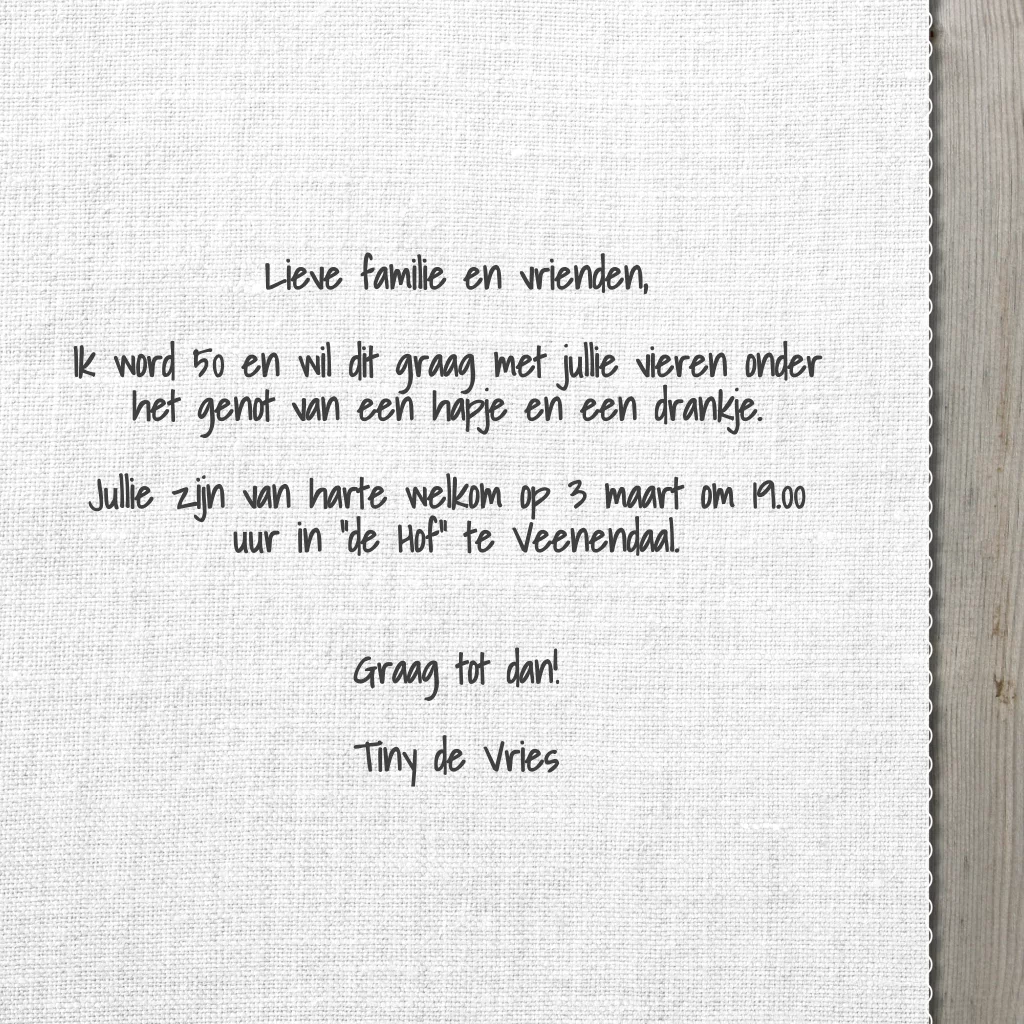 Lieve familie en vrienden,
Ik word 50 en wil dit graag met jullie vieren onder
het genot van een hapje en een drankje.
Jullie zijn van harte welkom op 3 maart om 19.00
uur in "de Hof" te Veenendaal.
Graag tot dan!
Tiny de Vries